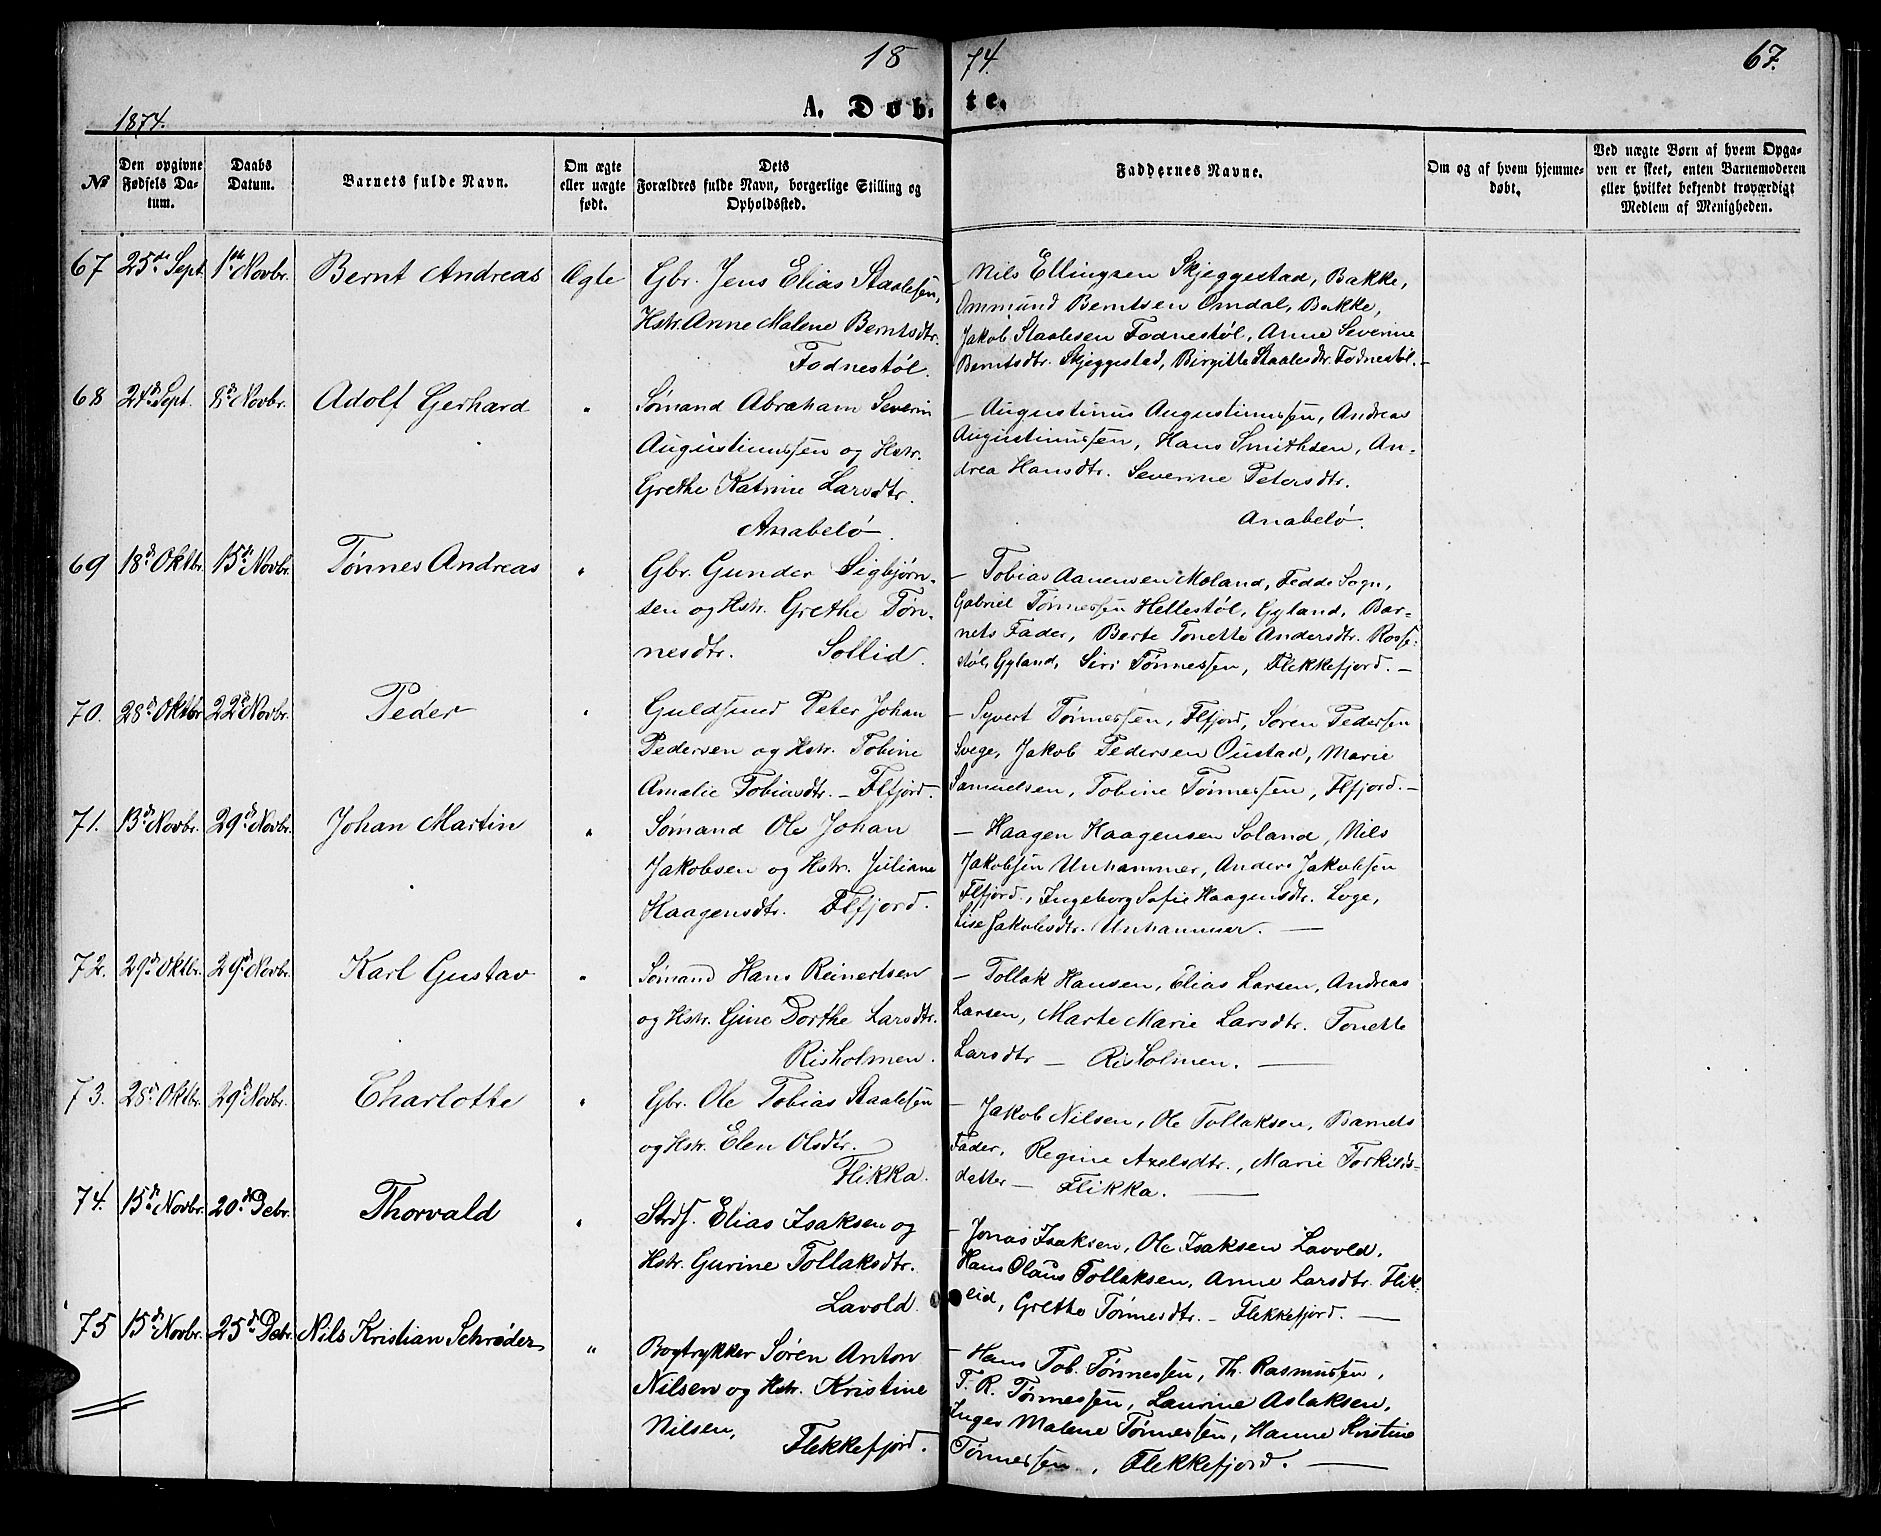 18 74. 67.
1874.
A. Døb- te.
No
Den opgivne Fødsels Da- tum.
Daabs Datum.
Barnets fulde Navn.
Om ægte eller uægte født.
Dets Forældres fulde Navn, borgerlige Stilling og Opholdssted.
Faddernes Navne.
Om og af hvem hjemme- døbt.
Ved uægte Børn af hvem Opga- ven er skeet, enten Barnemoderen eller hvilket bekjendt troværdigt Medlem af Menigheden.
67 25de Sept. 1ste Novbr. Bernt Andreas Ægte
Gbr. Jens Elias Staalesen,
Hstr. Anne Malene Berntsdtr.
Fodnestøl.
Nils Ellingsen Skjeggestad, Bakke,
Ommund Berntsen Omdal, Bakke,
Jakob Staalesen Fodnestøl, Anne Severine
Berntsdtr. Skjeggestad, Birgitte Staalesdtr. Fodnestøl. -
68 24d. Sept. 8d. Novbr. Adolf Gerhard "
Sømand Abraham Severin
Augustinussen og Hstr.
Grethe Katrine Larsdtr.
Anabelø.
- Augustinus Augustinussen, Andreas
Augustinussen, Hans Smithsen, An-
drea Hansdtr. Severine Petersdtr.
Anabelø.
69 18d. Oktbr. 15d. Novbr. Tønnes Andreas "
Gbr. Gunder Sigbjørn-
sen og Hstr. Grethe Tøn-
nesdtr. Sollid.
- Tobias Aanensen Moland, Fedde Sogn,
Gabriel Tønnessen Hellestøl, Gyland, Bar-
nets Fader, Berte Tonette Andersdtr. Rosse-
støl, Gyland, Siri Tønnessen, Flekkefjord. -
70. 28d. Oktbr. 22d. Novbr. Peder "
Guldsmed Peter Johan
Pedersen og Hstr. Tobine
Amalie Tobiasdtr. - Flfjord.
- Syvert Tønnessen, Flfjord, Søren Pedersen
Svege, Jakob Pedersen Oustad, Marie
Samuelsen, Tobine Tønnessen, Flfjord. -
71. 13d. Novbr. 29d. Novbr. Johan Martin "
Sømand Ole Johan
Jakobsen og Hstr. Juliane
Haagensdtr. Flfjord.
- Haagen Haagensen Soland, Nils
Jakobsen Unhammer, Anders Jakobsen
Flfjord., Ingeborg Sofie Haagensdtr. Loge,
Lise Jakobsdtr. Unhammer. -
72. 29d. Oktbr. 29d. Novbr. Karl Gustav "
Sømand Hans Reinertsen
og Hstr. Gine Dorthe Larsdtr.
Risholmen.
- Tollak Hansen, Elias Larsen, Andreas
Larsen, Marte Marie Larsdtr. Tonette
Larsdtr - Risholmen. -
73. 28d. Oktbr. 29d. Novbr. Charlotte "
Gbr. Ole Tobias Staalesen
og Hstr. Elen Olsdtr.
Flikka.
- Jakob Nilsen, Ole Tollaksen, Barnets
Fader, Regine Axelsdtr., Marie Torkilds-
datter - Flikka. -
74. 15d. Novbr. 20d. Debr. Thorvald "
Strds. Elias Isaksen og
Hstr. Gurine Tollaksdtr.
Lavold.
- Jonas Isaksen, Ole Isaksen Lavold,
Hans Olaus Tollaksen, Anne Larsdtr. Flik-
eid, Grethe Tønnesdtr. - Flekkefjord. -
75 15d. Novbr. 25d. Debr. Nils Kristian Schrøder "
Bogtrykker Søren Anton
Nilsen og Hstr. Kristine
Nilsen,
Flekkefjord.
- Hans Tob. Tønnessen, Th. Rasmussen,
T. R. Tønnessen, Laurine Aslaksen,
Inger Malene Tønnessen, Hanne Kristine
Tønnessen, Flekkefjord. -